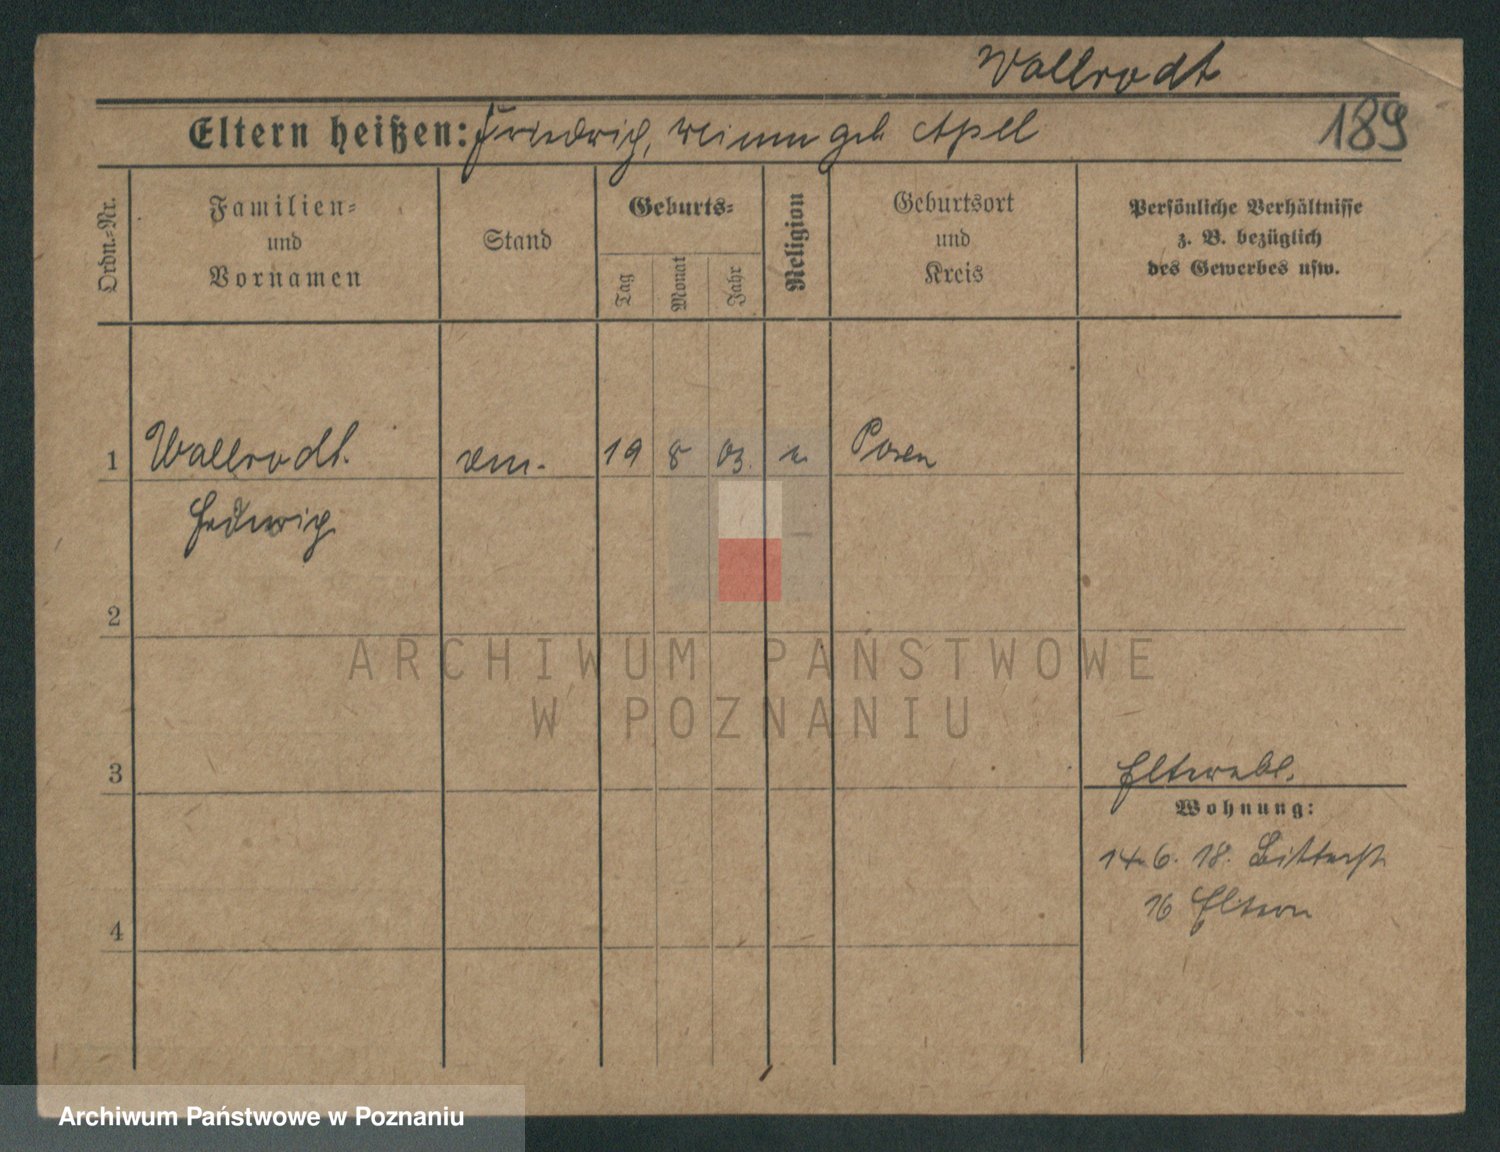 Wallrodt
Eltern heißen: Friedrich, geb Apel
189
Ordn.-Nr.
Familien-
und
Vornamen
Stand
Geburts-
Tag
Monat
Jahr
Religion
Geburtsort
und
Kreis
Persönliche Verhältnisse
z. B. bezüglich
des Gewerbes usw.
1 Wallrodt. 19 8 03. Posen
Hedwig
2
ARCHIWUM PAŃSTWOWE
W POZNANIU
3
Wohnung:
14.6. 18. Bitterstr
16 Eltern
4
Archiwum Państwowe w Poznaniu